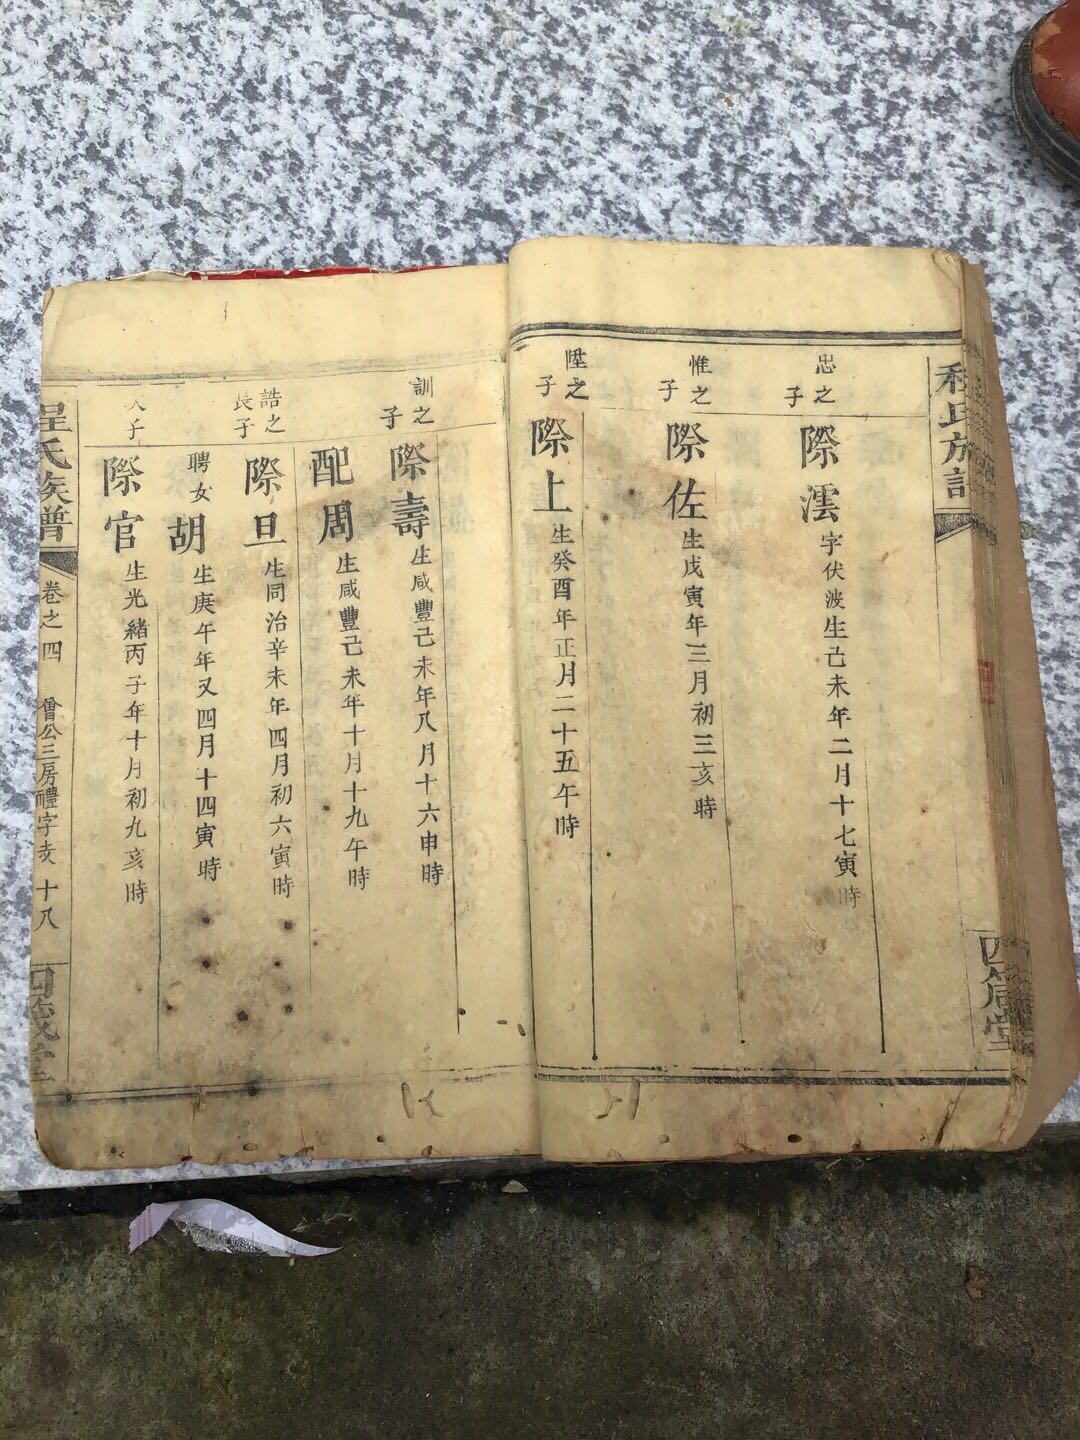 程氏族譜
四箴堂
忠之子
際澐字伏波生己未年二月十七寅時
惟之子
際佐生戊寅年三月初三亥時
陞之子
際上生癸酉年正月二十五午時
訓之子
際壽生咸豐己未年八月十六申時
配周生咸豐己未年十月十九午時
誥之長子
際旦生同治辛未年四月初六寅時
聘女胡生庚午年又四月十四寅時
次子
際官生光緒丙子年十月初九亥時
程氏族譜
卷之四
會公三房禮字支
十八
四箴堂